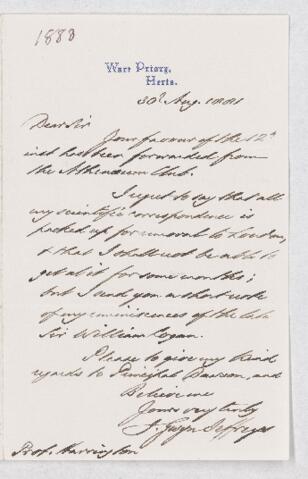 1883
Ware Priory,
Herts.
30th Aug. 1881
Dear Sir
Your favour of the 12th
inst has been forwarded from
the Athenæum Club.
I regret to say that all
my scientific correspondence is
packed up for removal to London,
& that I shall not be able to
get at it for some months;
but I send you a short note
of my reminiscences of the late
Sir William Logan.
Please to give my kind
regards to Principal Dawson, and
Believe me
Yours very truly
J. Gwyn Jeffreys
Prof. Harrington